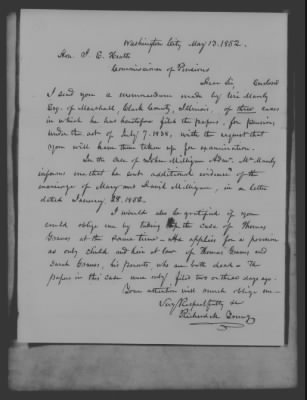 Washington City, May 13, 1852.
Hon. J. E. Heath
Commissioner of Pensions
Dear Sir Enclosed
I send you a memorandum made by Uri Manly
Esq. of Marshall, Clark County, Illinois, of three cases
in which he has heretofore filed the papers, for pension,
under the act of July 7. 1838, with the request that
you will have them taken up for examination.
In the case of John Milligan Adm. Mr. Manly
informs me that he sent additional evidence of the
marriage of Mary and David Milligan, in a letter
dated January 28. 1852.
I would also be gratified if you
could oblige me by taking up the case of Thomas
Graves at the same time. He applies for a pension
as only child and heir at law of Thomas Graves and
Sarah Graves, his parents who are both dead. The
papers in this case were only filed two or three days ago.
Your attention will much oblige me
Very Respectfully &c
Richard